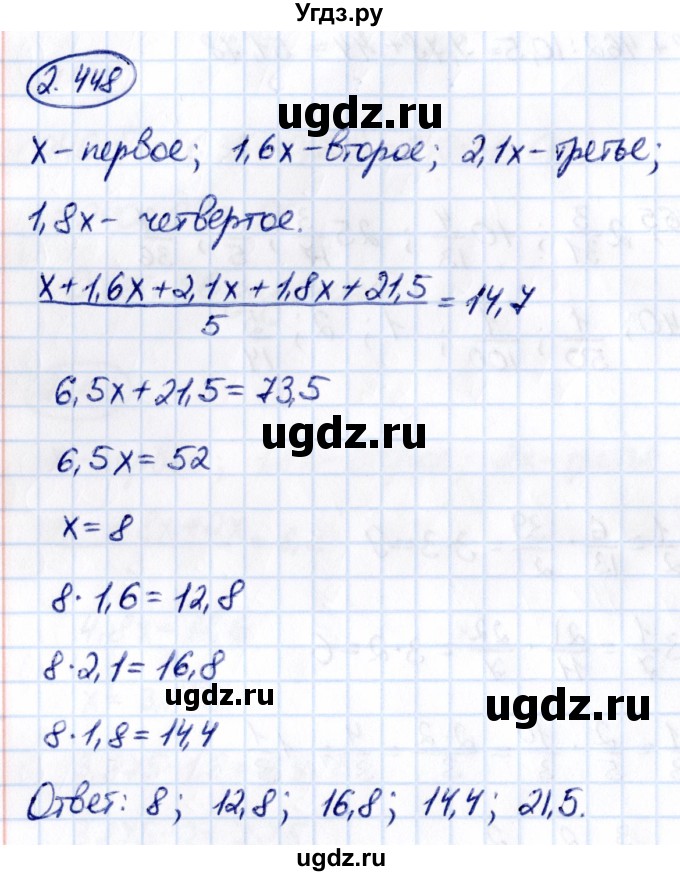 Угдз.ру
2.448
ugdz.ru
x - первое; 1,6x - второе; 2,1x - третье;
1,8x - четвертое.
x + 1,6x + 2,1x + 1,8x + 21,5 / 5 = 14,7
6,5x + 21,5 = 73,5
ugdz.ru
6,5x = 52
x = 8
8 · 1,6 = 12,8
8 · 2,1 = 16,8
ugdz.ru
ugdz.ru
8 · 1,8 = 14,4
Ответ: 8; 12,8; 16,8; 14,4; 21,5.
ugdz.ru